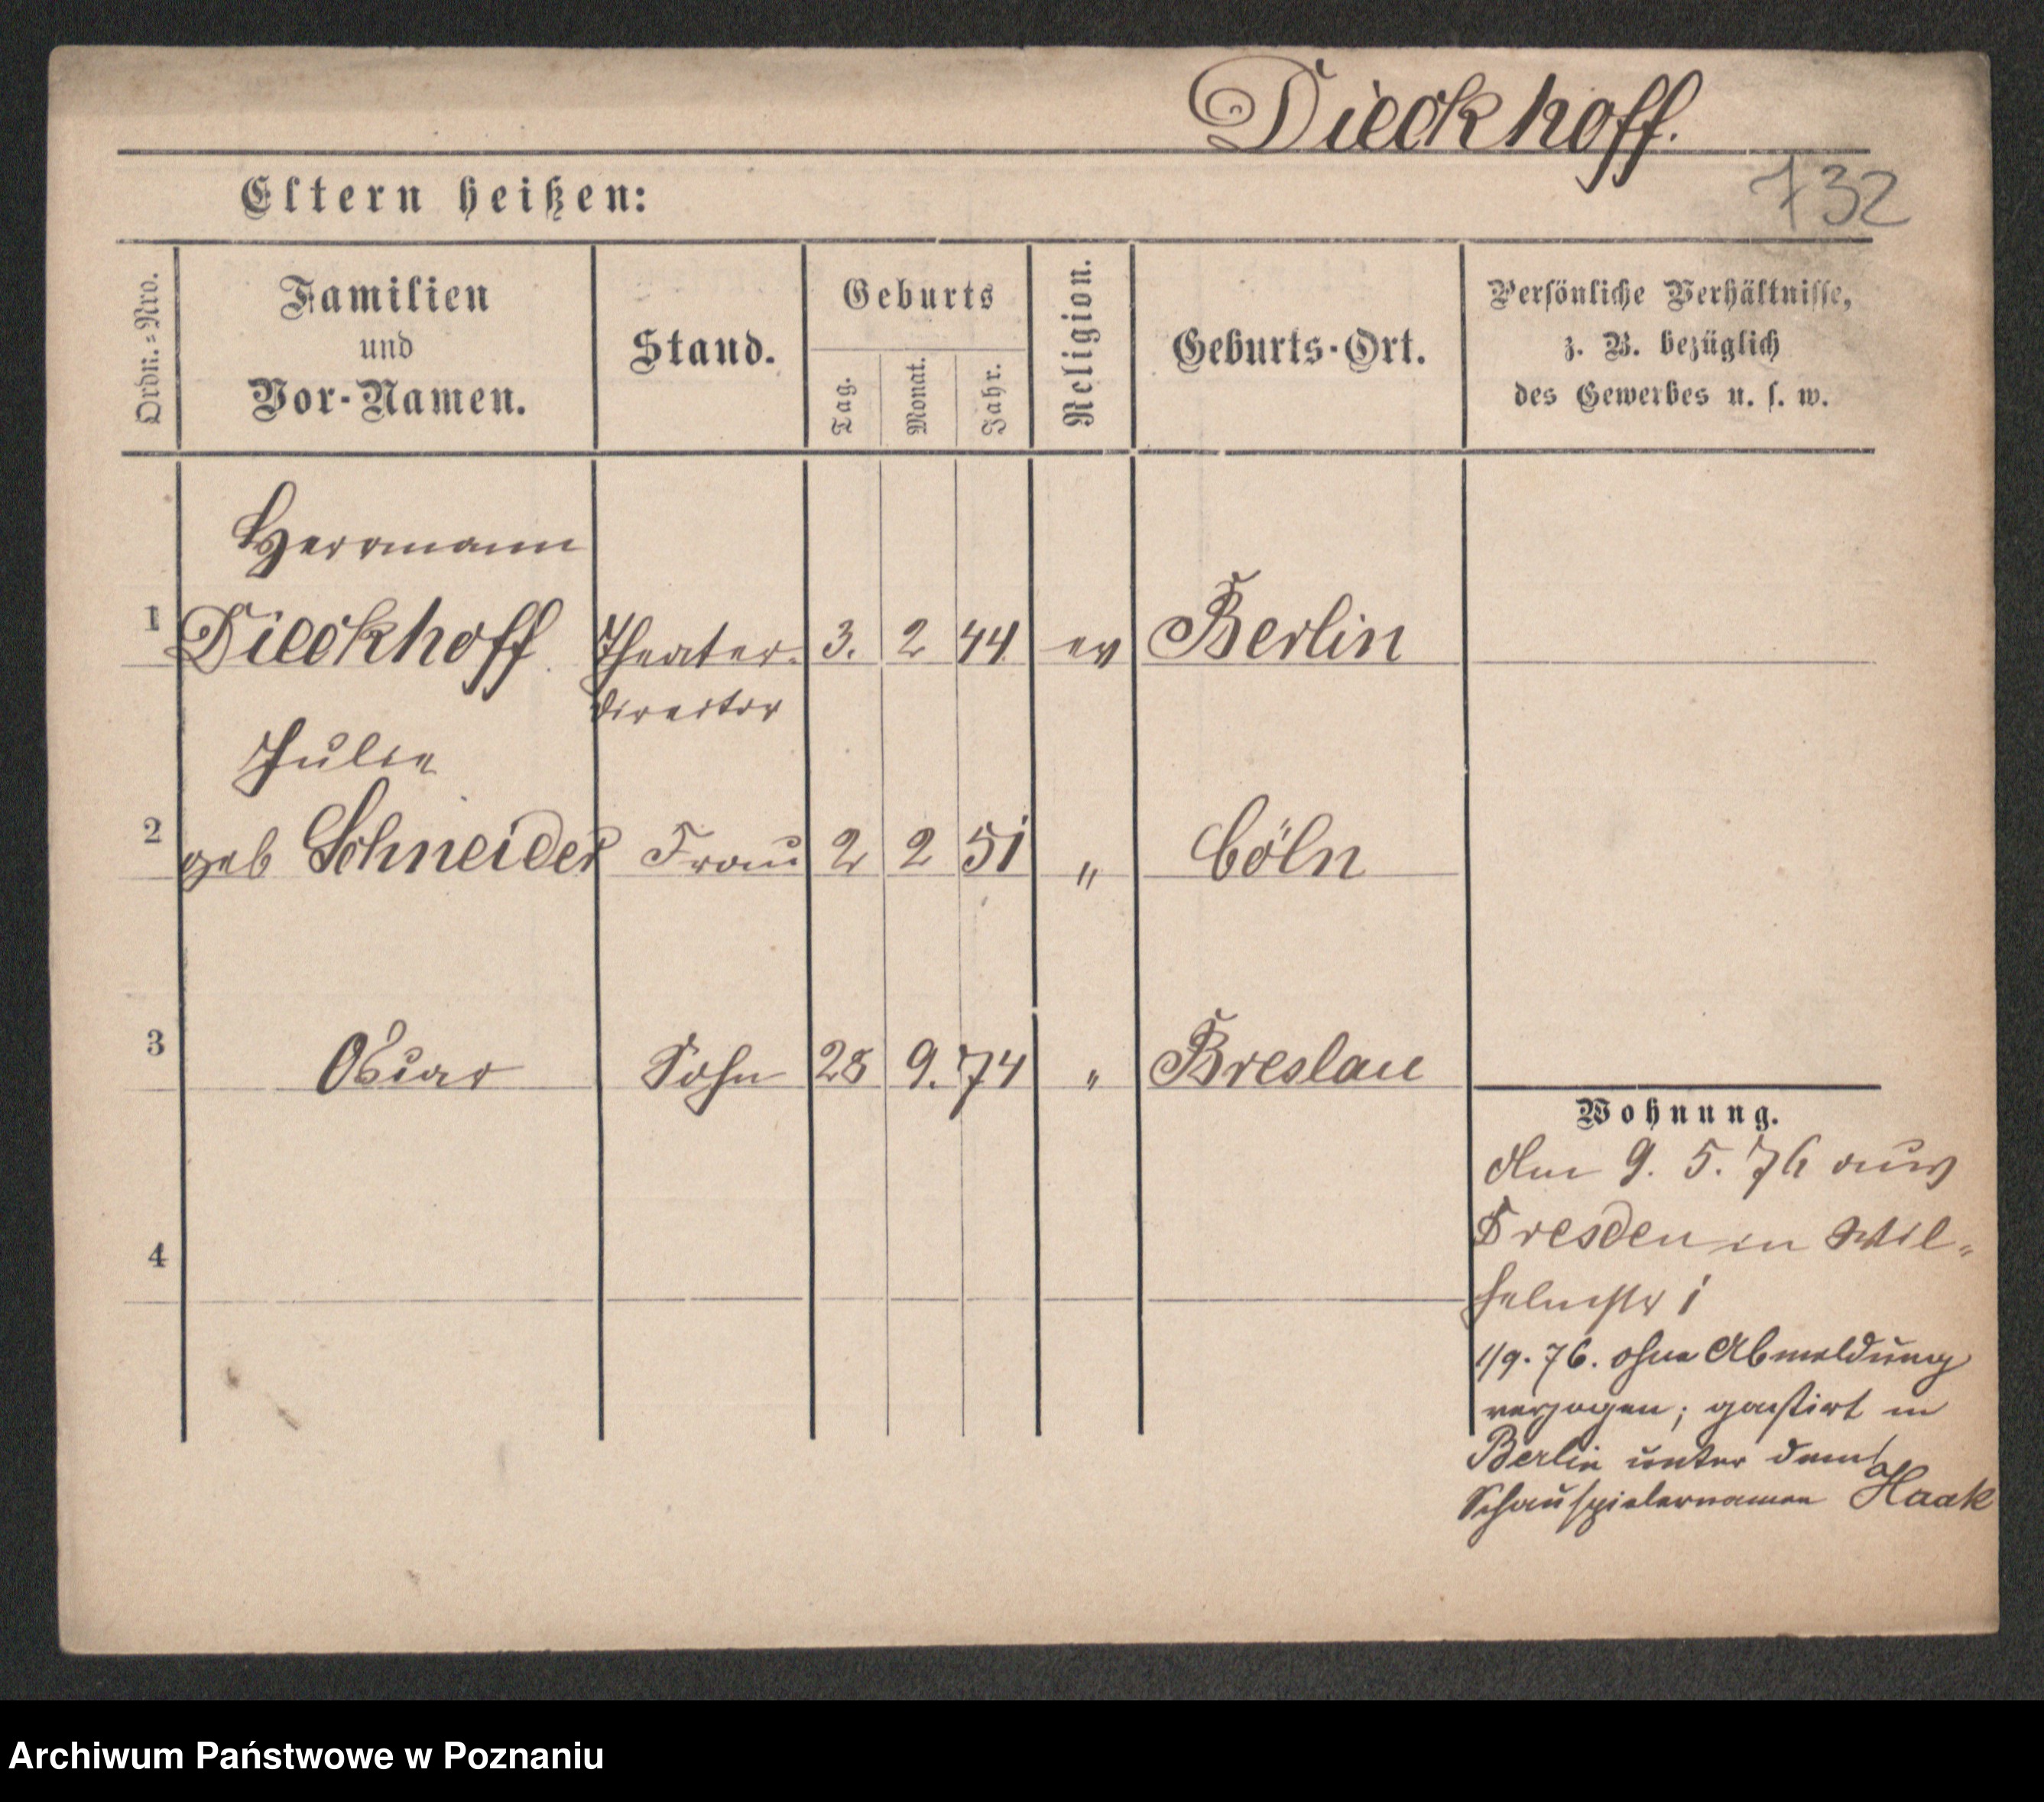 Dieckhoff.
732
Eltern heißen:
Ordn.-Nro.
Familien
und
Vor-Namen.
Stand.
Geburts
Tag.
Monat.
Jahr.
Religion.
Geburts-Ort.
Persönliche Verhältnisse,
z. B. bezüglich
des Gewerbes u. s. w.
Herrmann
1 Dieckhoff Theater- 3. 2 44 ev Berlin
director
Julie
2 geb Schneider Frau 2 2 51 " Cöln
3 Oscar Sohn 28 9. 74 " Breslau
4
Wohnung.
Am 9. 5. 76 aus
Dresden in Wil-
helmstr 1
1/9. 76. ohne Abmeldung
verzogen; gastirt in
Berlin unter dem
Schauspielernamen Haak
Archiwum Państwowe w Poznaniu